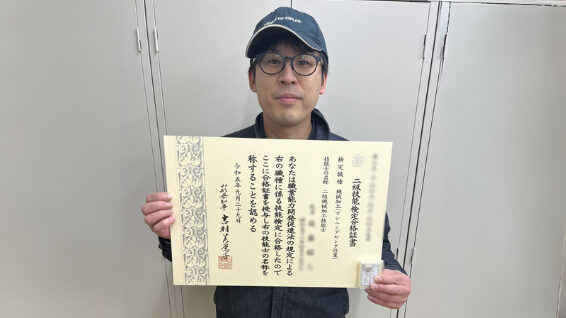 二級技能検定合格証書
検定職種 機械加工(マシニングセンタ作業)
技能士の名称 二級機械加工技能士
あなたは職業能力開発促進法の規定による
右の職種に係る技能検定に合格したので
ここに合格証書を授与し右の技能士の名称を
称することを認める
令和五年九月二十九日
山形県知事 吉村美栄子